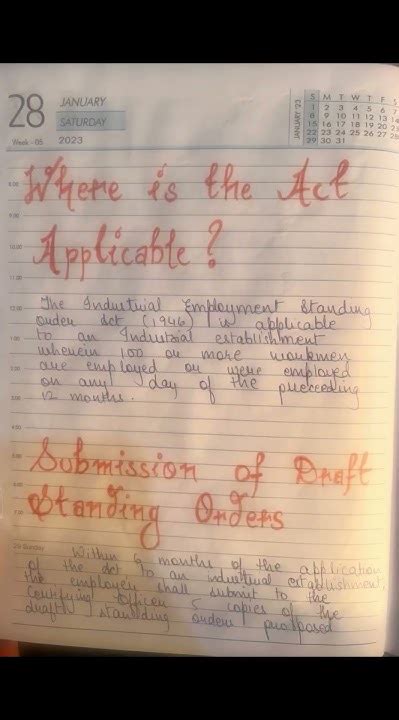 28
JANUARY
SATURDAY
Week - 05
2023
JANUARY '23
S M T W T F S
1 2 3 4 5 6 7
8 9 10 11 12 13 14
15 16 17 18 19 20 21
22 23 24 25 26 27 28
29 30 31
8.00
Where is the Act
9.00
10.00
Applicable?
11.00
12.00
The Industrial Employment Standing
order Act (1946) is applicable
1.00
to an Industrial establishment
wherein 100 or more workmen
2.00
are employed or were employed
on any day of the preceeding
3.00
12 months.
4.00
5.00
Submission of Draft
6.00
Standing Orders
7.00
29 Sunday
Within 6 months of the application
of the Act to an industrial establishment,
the employer shall submit to the
Certifying Officer 5 copies of the
draft standing orders proposed